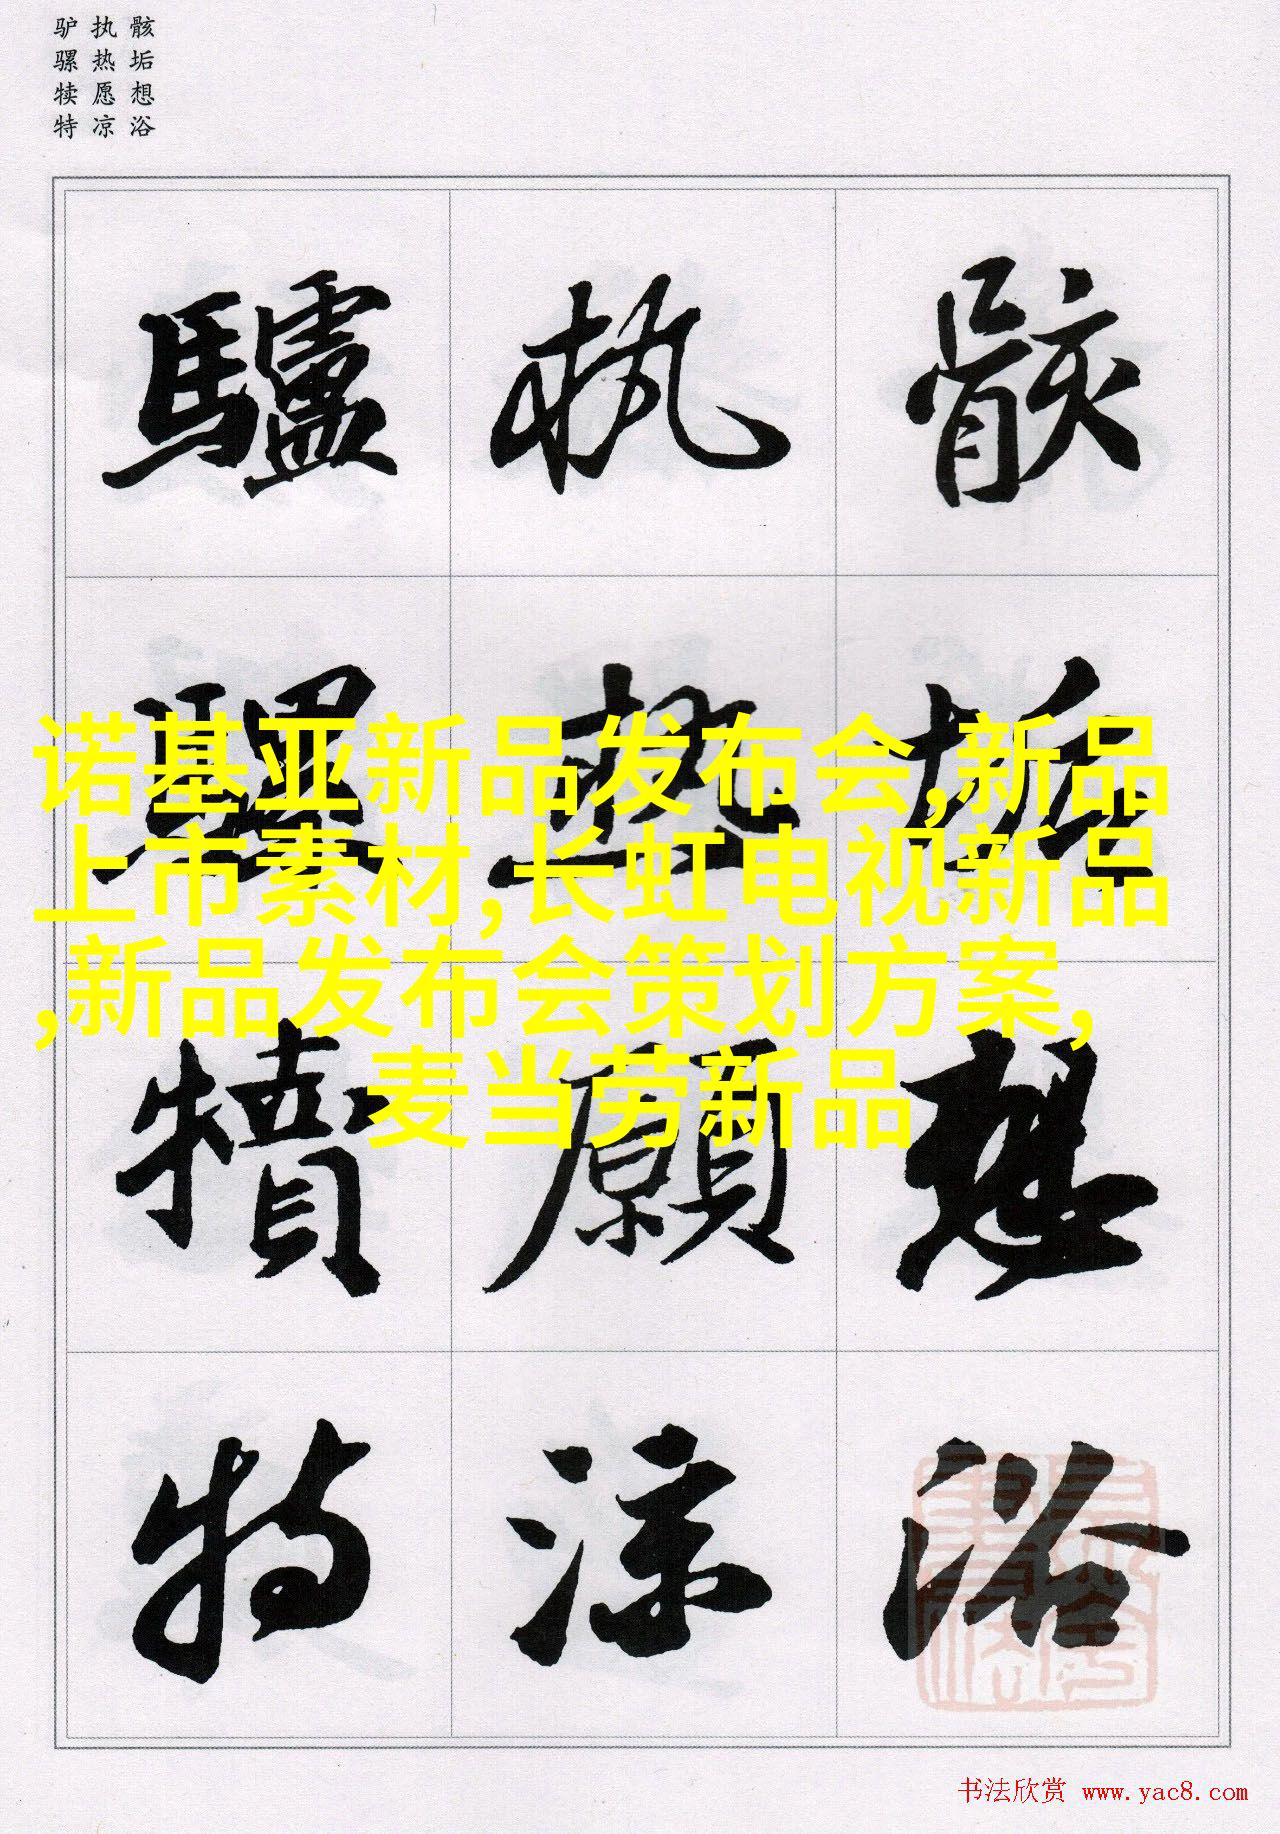 驴 执 骸
骡 热 垢
犊 愿 想
特 凉 浴
驢 执 骸
騾 热 垢
犢 願 想
特 凉 浴
诺基亚新品发布会,新品
上市素材,长虹电视新品
,新品发布会策划方案,
麦当劳新品
书法欣赏 www.yac8.com